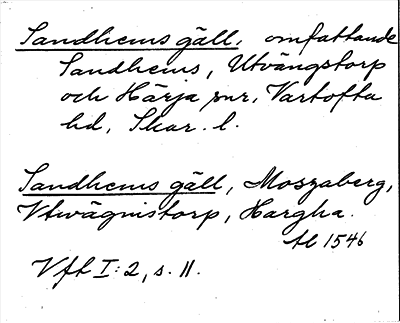 Sandhems gäll, omfattande
Sandhems, Utvängstorp
och Härja snr, Vartofta
hd, Skar. l.
Sandhems gäll, Moszaberg,
Vtwägnistorp, Hargha.
tl 1546
Vfl I:2, s. 11.